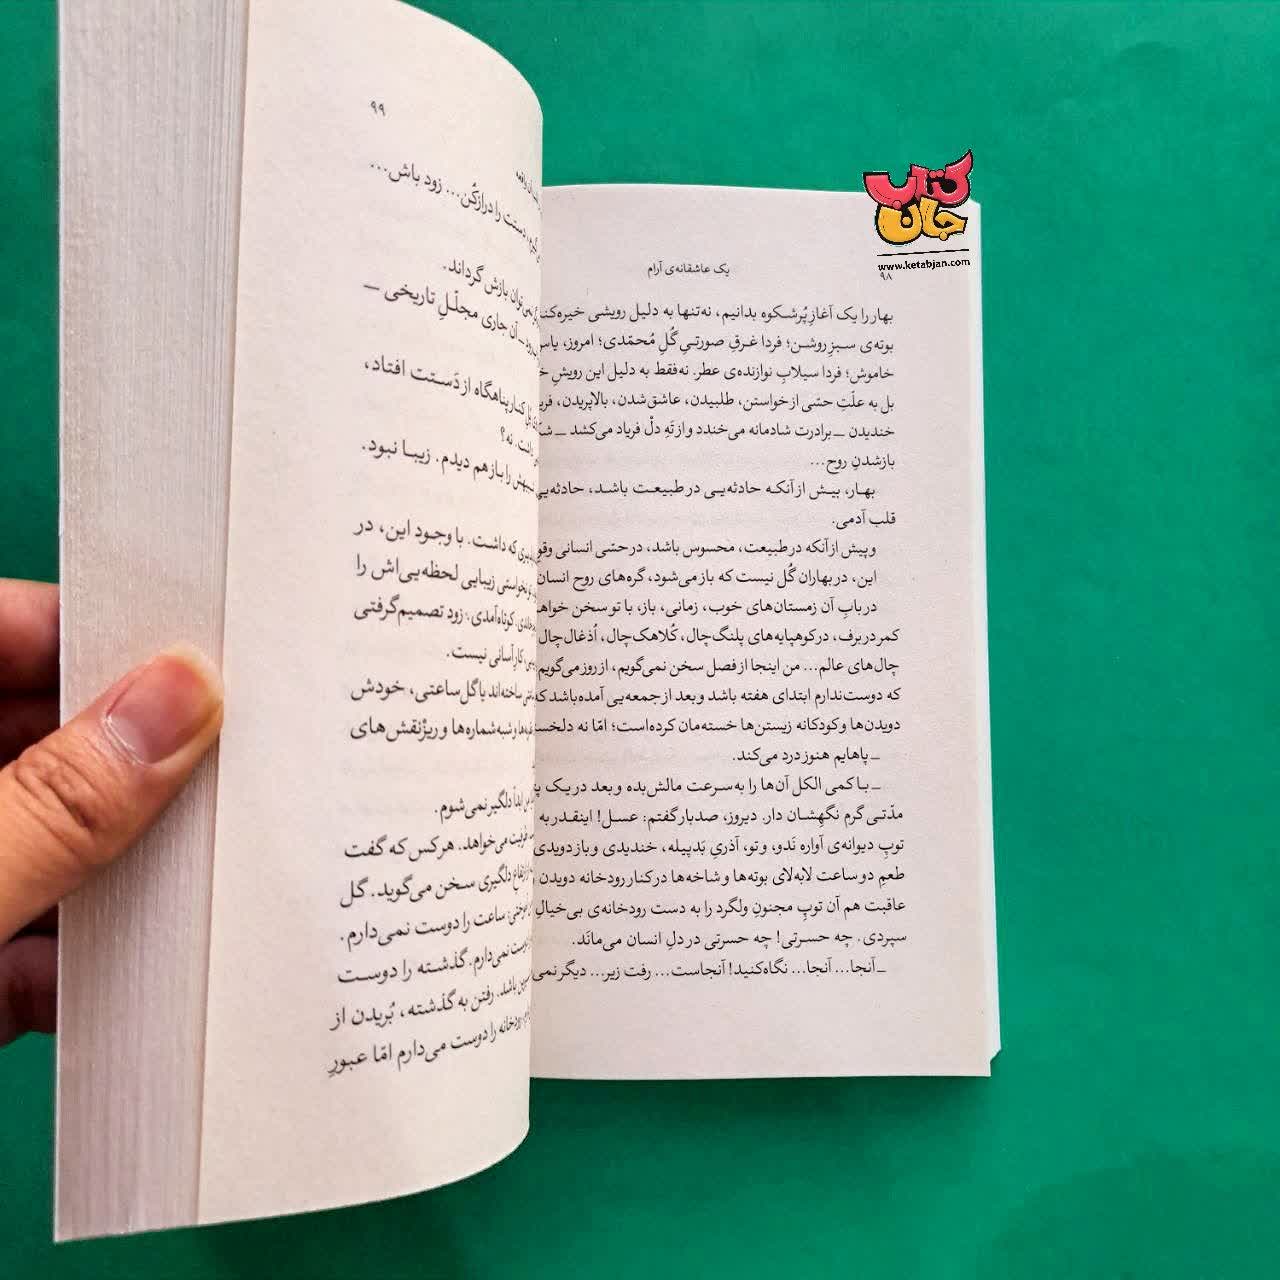 کتاب
جان
www.ketabjan.com
۹۸
یک عاشقانه‌ی آرام
بهار را یک آغازِ پُرشکوه بدانیم، نه‌تنها به دلیل رویشی
بوته‌ی سبزِ روشن؛ فردا غرقِ صورتیِ گُلِ مُحمّدی؛ امروز،
خاموش؛ فردا سیلابِ نوازنده‌ی عطر. نه‌فقط به دلیل این رویشِ
بل به علّتِ حسّی از خواستن، طلبیدن، عاشق‌شدن، بالاپریدن،
خندیدن ــ برادرت شادمانه می‌خندد و از تَهِ دلْ فریاد می‌کشد ــ
بازشدنِ روح...
بهار، بیش از آنکه حادثه‌یی در طبیعت باشد، حادثه‌یی
قلب آدمی.
و پیش از آنکه در طبیعت، محسوس باشد، در حسّی انسانی
این، در بهاران گُل نیست که باز می‌شود، گره‌های روح انسان
در بابِ آن زمستان‌های خوب، زمانی، باز، با تو سخن
کمر در برف، در کوهپایه‌های پلنگ‌چال، کُلاهک‌چال، اُذغال‌چال
چال‌های عالم... من اینجا از فصل سخن نمی‌گویم، از روز می‌گویم
که دوست ندارم ابتدای هفته باشد و بعد از جمعه‌یی آمده باشد که
دویدن‌ها و کودکانه زیستن‌ها خسته‌مان کرده‌است؛ امّا نه
ــ پاهایم هنوز درد می‌کند.
ــ با کمی الکل آن‌ها را به سرعت مالش بده و بعد در یک
مدّتی گرم نگهشان دار. دیروز، صدبار گفتم: عسل! اینقدر به
توپِ دیوانه‌ی آواره نَدو، و تو، آذریِ بَدپیله، خندیدی و باز دویدی
طعمِ دو ساعت لابه‌لای بوته‌ها و شاخه‌ها در کنار رودخانه دویدن
عاقبت هم آن توپِ مجنونِ ولگرد را به دست رودخانه‌ی بی‌خیالِ
سپردی. چه حسرتی! چه حسرتی در دلِ انسان می‌مانَد.
ــ آنجا... آنجا... نگاه کنید! آنجاست... رفت زیر... دیگر
۹۹
دستت را دراز کُن... زود باش...
توان بازش گرداند.
آن جاری مجلّلِ تاریخی ــ
کنار پناهگاه از دَستت افتاد،
نه؟
را باز هم دیدم. زیبا نبود.
که داشت. با وجود این، در
نخواستی زیبایی لحظه‌یی‌اش را
کوتاه آمدی؛ زود تصمیم گرفتی
کارِ آسانی نیست.
ساخته‌اند یا گل ساعتی، خودش
و شبه‌شماره‌ها و ریزْنقش‌های
ابداً دلگیر نمی‌شوم.
می‌خواهد. هرکس که گفت
دلگیری سخن می‌گوید. گل
ساعت را دوست نمی‌دارم.
دوست نمی‌دارم. گذشته را دوست
باشد. رفتن به گذشته، بُریدن از
رودخانه را دوست می‌دارم امّا عبورِ